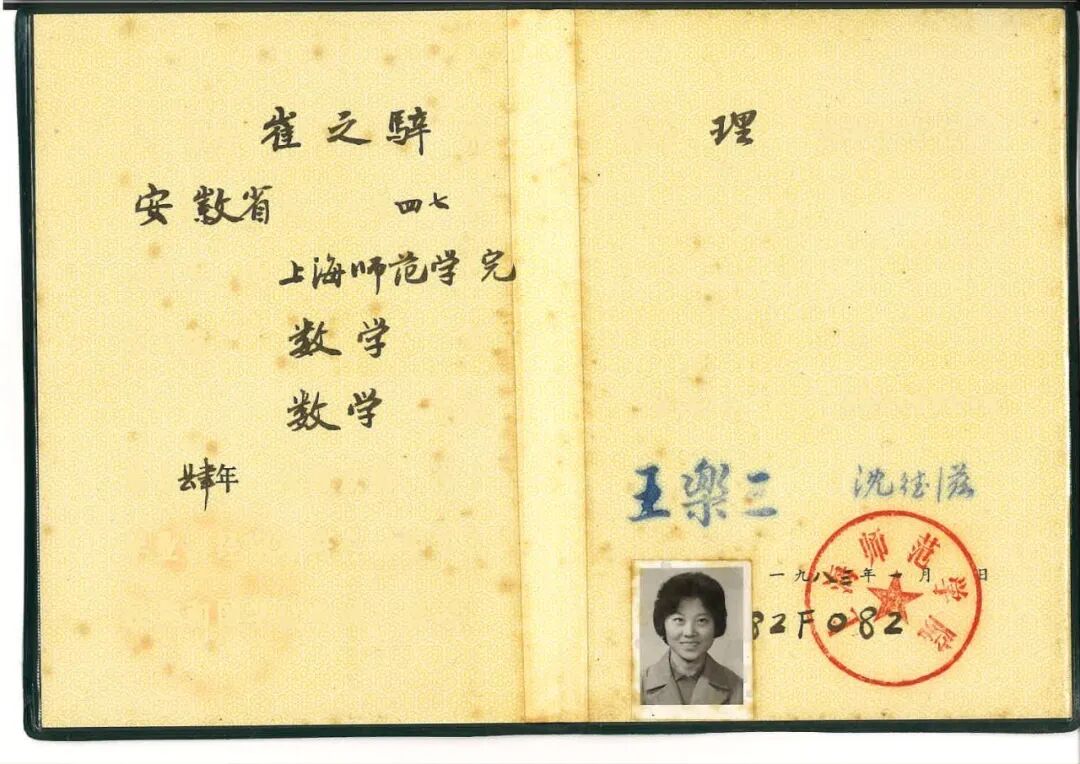 崔之騂
安徽省 四七
上海师范学完
数学
数学
肆年
理
王樂三 沈德滋
一九八二年一月 日
82F082
上海师范学院